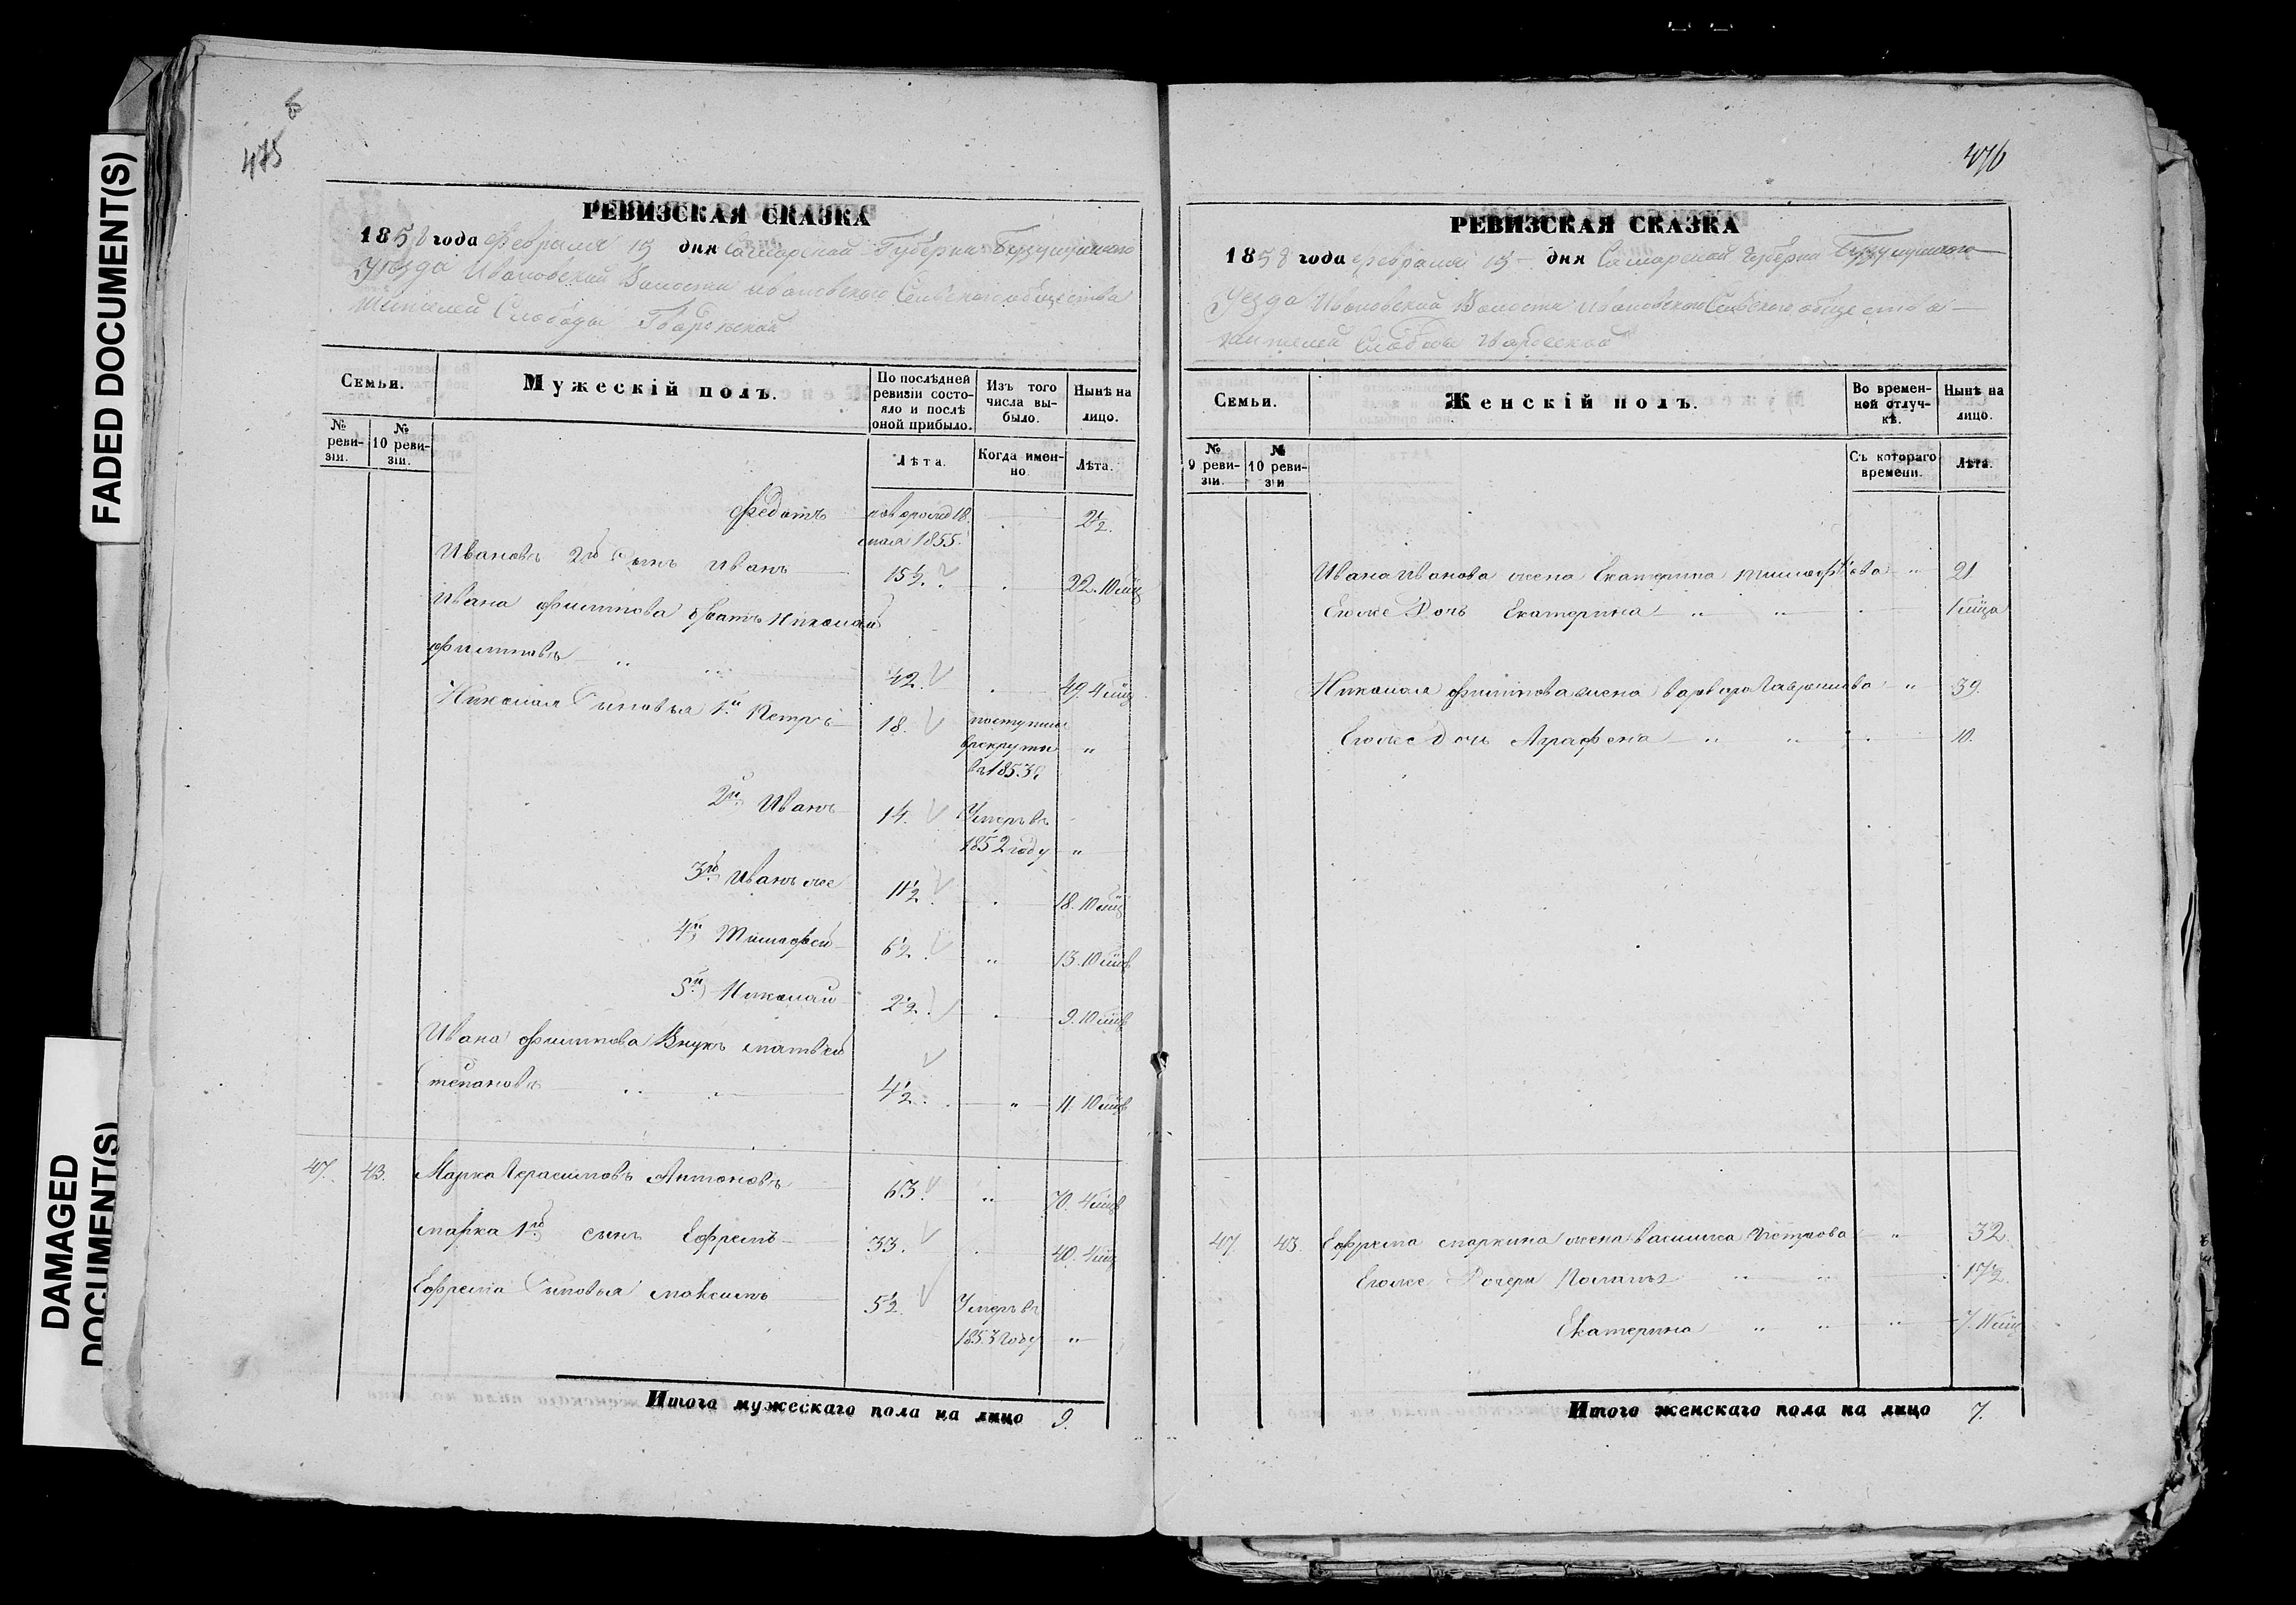 FADED DOCUMENT(S)
DAMAGED
DOCUMENT(S)
475
РЕВИЗСКАЯ СКАЗКА
1858 года Февраля 15 дня Самарской Губерни Бузулукского
Уезда Ивановской Волости ивановского Сельского общества
жителей Слободы Гвардейской
Семьи.
Мужескій полъ.
По послѣдней
ревизіи состо-
яло и послѣ
оной прибыло.
Изъ того
числа вы-
было.
Нынѣ на
лицо.
№
реви-
зіи.
№
10 реви-
зіи.
Лѣта.
Когда имен-
но
Лѣта.
Федотъ новорожд 18 2½.
мая 1855.
Ивановъ 2й Сынъ Иванъ 15½. 22. 10 мц
Ивана Филипова братъ Николай
Филиповъ 42. 49. 4 мц
Николая Сыновья 1й Петръ 18. поступил
врекруты "
въ 1853г
2й Иванъ 14. Умеръ въ
1852 году "
3й Иванъ же 11½. 18. 10 мц
4й Тимофей 6½. " 13. 10 мцв
5й Николай 2½. 9. 10 мцв
Ивана Филипова Внукъ матвей
Степановъ 4½. " 11. 10 мцв
47. 43. Марка Герасимовъ Антоновъ 63. " 70. 4 мцв
марка 1й сынъ Ефремъ 33. 40. 4 мц
Ефрема Сыновья максимъ 5½. Умеръ въ
1853 году "
Итого мужескаго пола на лицо 9.
476
РЕВИЗСКАЯ СКАЗКА
1858 года февраля 15 дня Самарской Губерни Бузулукского
Уезда Ивановской Волости ивановского Сельского общества
жителей Слободы Гвардейской
Семьи.
Женскій полъ.
Во времен-
ной отлуч-
кѣ.
Нынѣ на
лицо.
№
9 реви-
зіи.
№
10 реви-
зіи
Съ котораго
времени.
Лѣта.
Ивана Иванова жена Екатерина тимофѣева " 21
Егоже Дочь Екатерина 1 мца
Николая Филипова жена варвара Гаврилова " 39.
Егоже Дочь Аграфена 10.
47. 43. Ефрема маркина жена василиса Петрова " 32.
Егоже Дочери 17½.
Екатерина " 7. 11 мц
Итого женскаго пола на лицо 7.